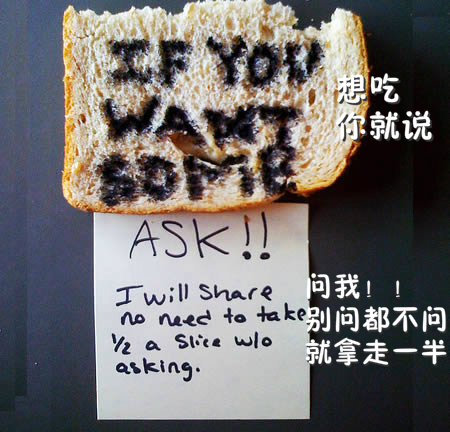 IF YOU
WANT
SOME
想吃
你就说
ASK!!
I will share
no need to take
1/2 a slice w/o
asking.
问我！！
别问都不问
就拿走一半